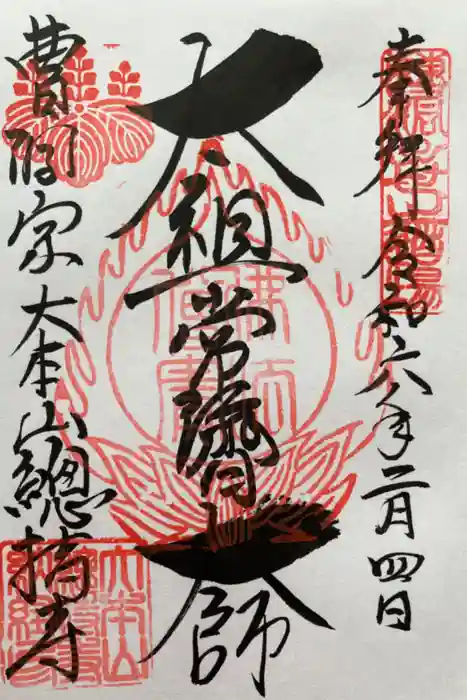 奉拜 令和六年二月四日
太祖常濟大師
曹洞宗大本山總持寺